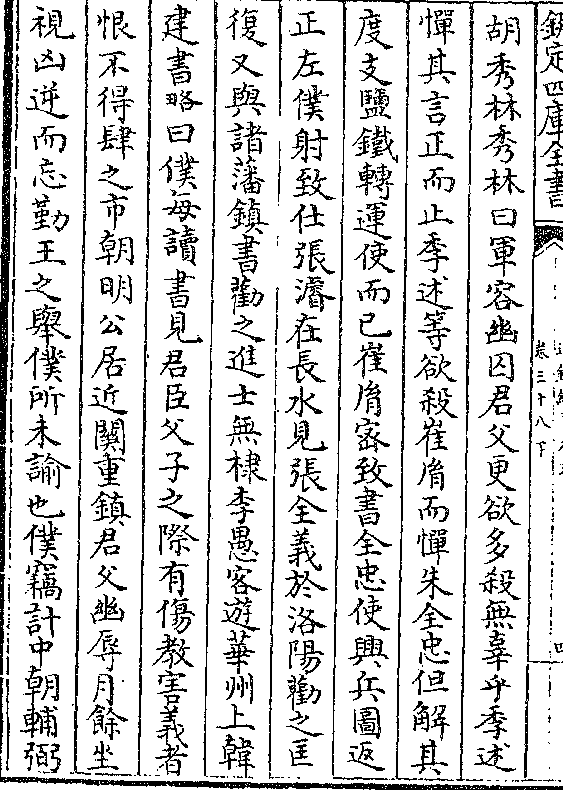 欽定四庫全書
卷三十八下
胡秀林秀林曰軍容幽囚君父更欲多殺無辜乎季述
憚其言正而止季述等欲殺崔𦙍而憚朱全忠但解其
度支鹽鐵轉運使而已崔𦙍宻致書全忠使興兵圖返
正左僕射致仕張濬在長水見張全義於洛陽勸之匡
復又與諸藩鎮書勸之進士無棣李愚客遊華州上韓
建書略曰僕每讀書見君臣父子之際有傷教害義者
恨不得肆之市朝明公居近闗重鎮君父幽辱月餘坐
視凶逆而忘勤王之舉僕所未諭也僕竊計中朝輔弼